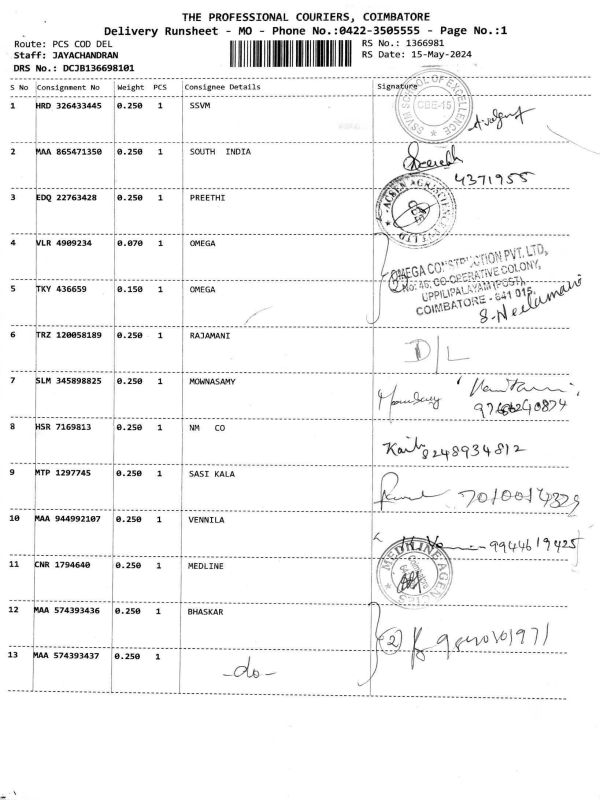 THE PROFESSIONAL COURIERS, COIMBATORE
Delivery Runsheet - MO - Phone No.:0422-3505555 - Page No.:1
Route: PCS COD DEL
RS No.: 1366981
Staff: JAYACHANDRAN
RS Date: 15-May-2024
DRS No.: DCJB136698101
S No Consignment No Weight PCS Consignee Details Signature
1 HRD 326433445 0.250 1 SSVM
SSVM SCHOOL OF EXCELLENCE
CBE-15
2 MAA 865471350 0.250 1 SOUTH INDIA
4371955
3 EDQ 22763428 0.250 1 PREETHI
4 VLR 4909234 0.070 1 OMEGA
(2) OMEGA CONSTRUCTION PVT. LTD,
No: 46, CO-OPERATIVE COLONY,
UPPILIPALAYAM (POST),
COIMBATORE - 641 015.
5 TKY 436659 0.150 1 OMEGA
S. Neelamani
6 TRZ 120058189 0.250 1 RAJAMANI D/L
7 SLM 345898825 0.250 1 MOWNASAMY
8 HSR 7169813 0.250 1 NM CO
8248934812
9 MTP 1297745 0.250 1 SASI KALA
10 MAA 944992107 0.250 1 VENNILA
9944619425
11 CNR 1794640 0.250 1 MEDLINE
MEDLINE AGENCIES
12 MAA 574393436 0.250 1 BHASKAR
(2)
13 MAA 574393437 0.250 1 -do-